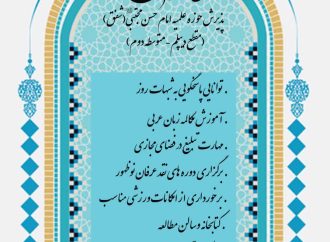 پذیرش حوزه علمیه امام حسن مجتبی (شفق)
(مقطع دیپلم - متوسطه دوم)
. توانایی پاسخگویی به شبهات روز
. آموزش مکالمه زبان عربی
. مهارت تبلیغ در فضای مجازی
. برگزاری دوره های نقد عرفان نوظهور
. برخورداری از امکانات ورزشی مناسب
. کتابخانه و سالن مطالعه